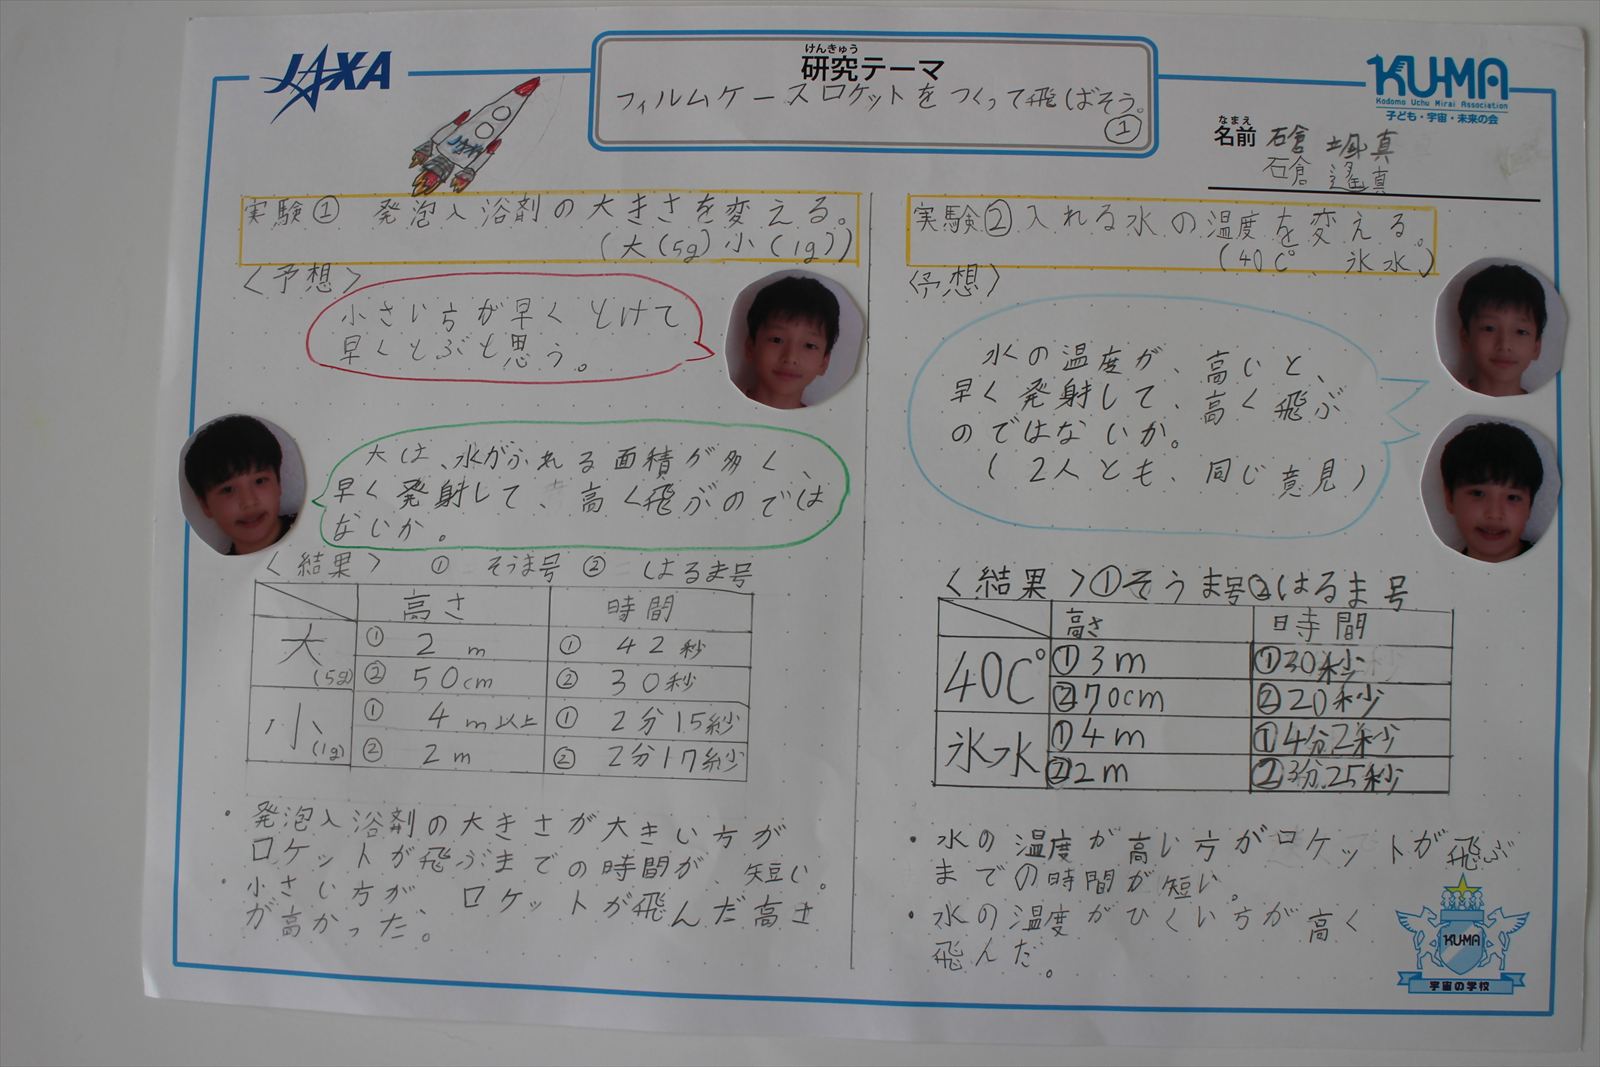 JAXA
けんきゅう
研究テーマ
フィルムケースロケットをつくって飛ばそう。
①
KU-MA
Kodomo Uchu Mirai Association
子ども・宇宙・未来の会
なまえ
名前 石倉 颯真
石倉 遥真
JAXA
実験① 発泡入浴剤の大きさを変える。
(大(5g)小(1g))
〈予想〉
小さい方が早くとけて
早くとぶと思う。
大は、水がふれる面積が多く、
早く発射して、高く飛ぶのでは
ないか。
〈結果〉 ① そうま号 ② はるま号
高さ 時間
大(5g) ① 2m ① 42秒
② 50cm ② 30秒
小(1g) ① 4m以上 ① 2分15秒
② 2m ② 2分17秒
・発泡入浴剤の大きさが大きい方が
ロケットが飛ぶまでの時間が、短い。
・小さい方が、ロケットが飛んだ高さ
が高かった。
実験②入れる水の温度を変える。
(40C° 氷水)
〈予想〉
水の温度が、高いと、
早く発射して、高く飛ぶ
のではないか。
(2人とも、同じ意見)
〈結果〉①そうま号②はるま号
高さ 時間
40C° ①3m ①30秒
②70cm ②20秒
氷水 ①4m ①4分2秒
②2m ②3分25秒
・水の温度が高い方がロケットが飛ぶ
までの時間が短い。
・水の温度がひくい方が高く
飛んだ。
KU-MA
宇宙の学校